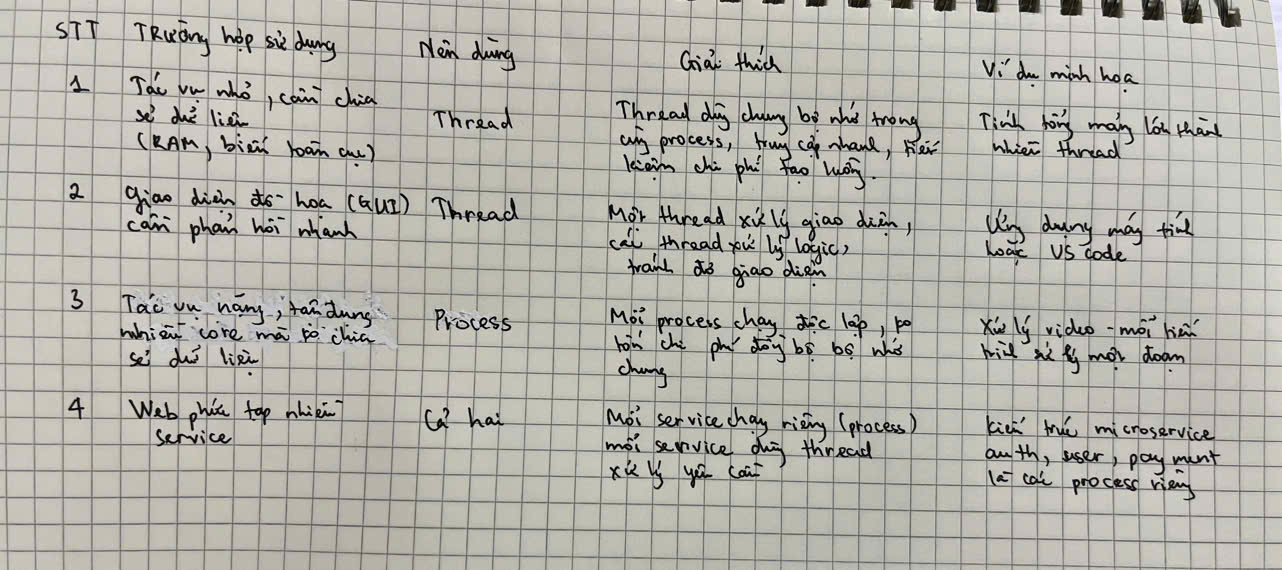 STT Trường hợp sử dụng Nên dùng Giải thích Ví dụ minh hoạ
1 Tác vụ nhỏ, cần chia
sẻ dữ liệu
(RAM, biến toàn cục)
Thread
Thread dùng chung bộ nhớ trong
cùng process, truy cập nhanh, tiết
kiệm chi phí tạo luồng.
Tính tổng mảng lớn thành
nhiều thread
2 Giao diện đồ hoạ (GUI)
cần phản hồi nhanh
Thread
Một thread xử lý giao diện,
các thread xử lý logic,
tránh đơ giao diện
Ứng dụng máy tính
hoặc VS code
3 Tác vụ nặng, tận dụng
nhiều core mà ko chia
sẻ dữ liệu
Process
Mỗi process chạy độc lập, ko
tốn chi phí đồng bộ bộ nhớ
chung
Xử lý video - mỗi tiến
trình xử lý một đoạn
4 Web phức tạp nhiều
service
Cả hai
Mỗi service chạy riêng (process)
mỗi service dùng thread
xử lý yêu cầu
kiến trúc microservice
auth, user, payment
là các process riêng